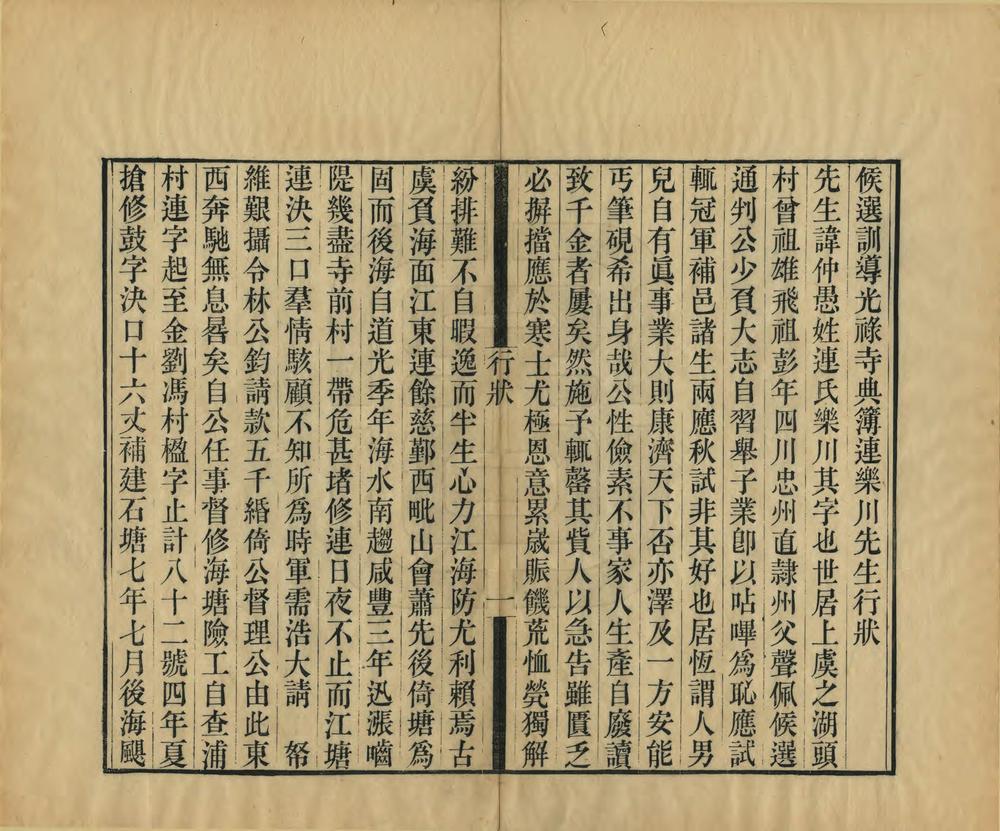 候選訓導光祿寺典簿連樂川先生行狀
先生諱仲愚姓連氏樂川其字也世居上虞之湖頭
村曾祖雄飛祖彭年四川忠州直隸州父聲佩候選
通判公少負大志自習舉子業卽以呫嗶爲恥應試
輒冠軍補邑諸生兩應秋試非其好也居恆謂人男
兒自有眞事業大則康濟天下否亦澤及一方安能
丐筆硯希出身哉公性儉素不事家人生產自廢讀
致千金者屢矣然施予輒罄其貲人以急告雖匱乏
必摒擋應於寒士尤極恩意累歲賑饑荒恤煢獨解
行狀 一
紛排難不自暇逸而半生心力江海防尤利賴焉古
虞負海面江東連餘慈鄞西毗山會蕭先後倚塘爲
固而後海自道光季年海水南趨咸豐三年迅漲嚙
隄幾盡寺前村一帶危甚堵修連日夜不止而江塘
連決三口羣情駭顧不知所爲時軍需浩大請　帑
維艱攝令林公鈞請款五千緡倚公督理公由此東
西奔馳無息晷矣自公任事督修海塘險工自查浦
村連字起至金劉馮村楹字止計八十二號四年夏
搶修鼓字決口十六丈補建石塘七年七月後海颶